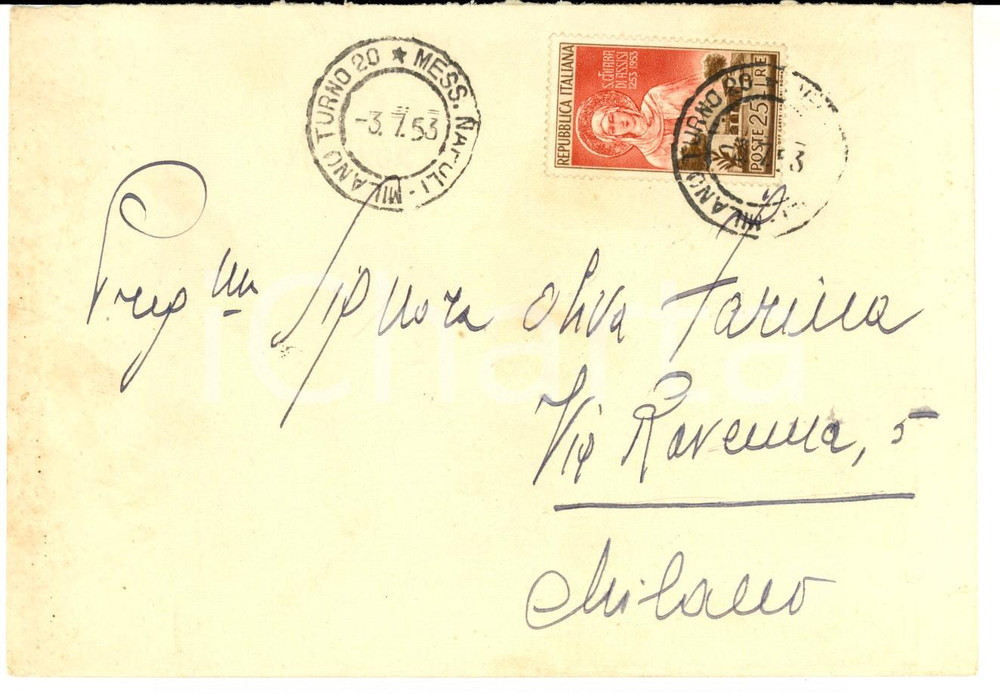 MESS. NAPOLI - MILANO TURNO 20
-3.7.53
REPUBBLICA ITALIANA
S. CHIARA
DI ASSISI
1253 1953
POSTE 25 LIRE
MILANO TURNO 20
53
Preg ma Signora Oliva Farina
Via Ravenna, 5
Milano
iCharta